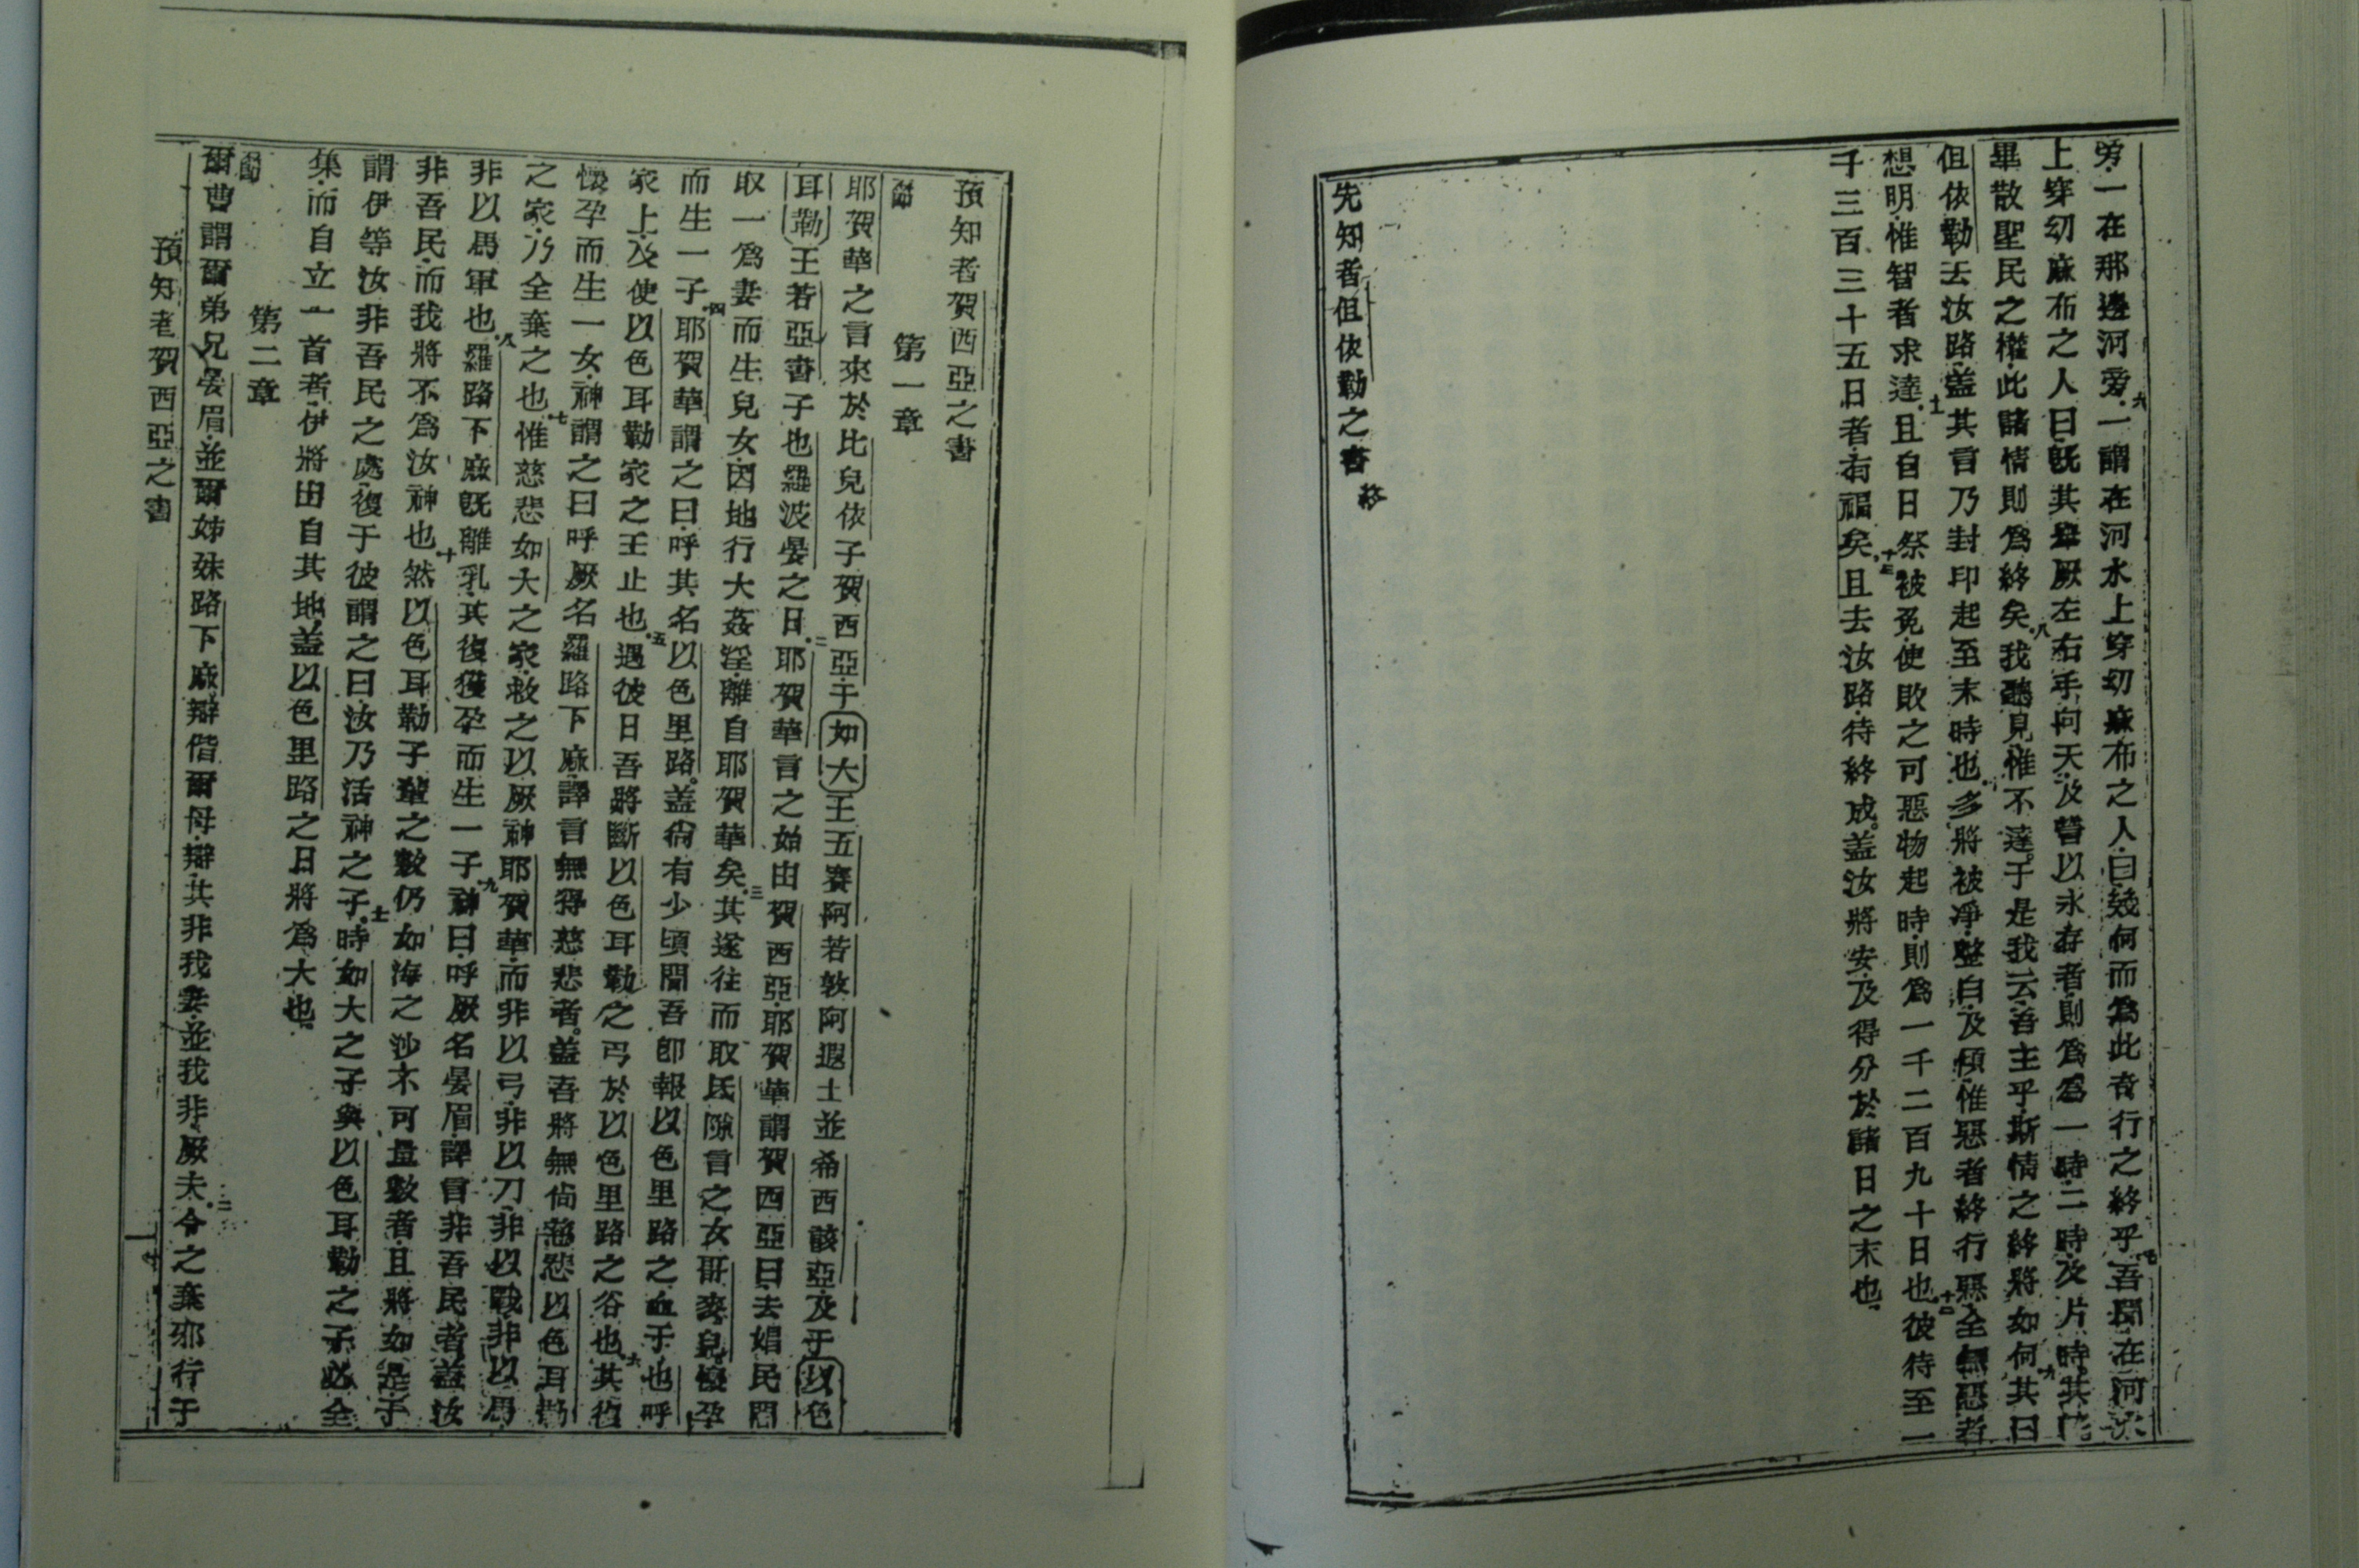 旁一在那邊河旁九一謂在河水上穿幼麻布之人曰幾何而爲此奇行之終乎吾聞在河水
上穿幼麻布之人曰旣其舉厥左右手向天及誓以永存者則爲爲一時二時及片時其能
畢散聖民之權此諸情則爲終矣八我聽見惟不達于是我云吾主乎斯情之終將如何九其曰
但依勒去汝路盖其言乃封印起至末時也十多將被淨整白及傾惟惡者終行惡全無惡者
想明惟智者求達十一且自日祭被免使敗之可惡物起時則爲一千二百九十日也十二彼待至一
千三百三十五日者有福矣十三且去汝路待終成盖汝將安及得分於諸日之末也
先知者但依勒之書 終
預知者賀西亞之書
第一章
節
耶賀華之言來於比兒依子賀西亞于如大王五賽阿若敦阿遐士並希西該亞及于以色
耳勒王若亞書子也羅波晏之日二耶賀華言之始由賀西亞耶賀華謂賀西亞曰去娼民間
取一爲妻而生兒女因地行大姦淫離自耶賀華矣三其遂往而取氐隙言之女哥麥兒懷孕
而生一子四耶賀華謂之曰呼其名以色里路盖尙有少頃間吾卽報以色里路之血于也呼
家上及使以色耳勒家之王止也五遇彼日吾將斷以色耳勒之弓於以色里路之谷也六其復
懷孕而生一女神謂之曰呼厥名羅路下麻譯言無得慈悲者盖吾將無尙慈悲以色耳勒
之家乃全棄之也七惟慈悲如大之家救之以厥神耶賀華而非以弓非以刀非以戰非以馬
非以馬軍也八羅路下麻旣離乳其復獲孕而生一子九神曰呼厥名晏眉譯言非吾民者盖汝
非吾民而我將不爲汝神也十然以色耳勒子輩之數仍如海之沙不可量數者且將如是于
謂伊等汝非吾民之處復于彼謂之曰汝乃活神之子十一時如大之子與以色耳勒之子必全
集而自立一首者伊將由自其地盖以色里路之日將爲大也
第二章
節
爾曹謂爾弟兄晏眉並爾姊妹路下麻辯偕爾母辯其非我妻並我非厥夫二令之棄邪行于
預知者賀西亞之書
一